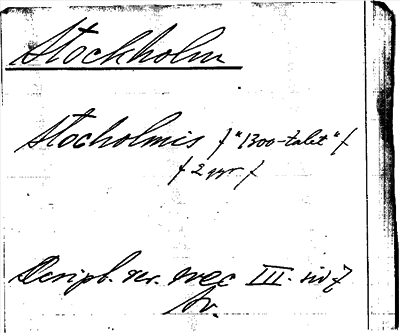 Stockholm
Stocholmis /"1300-talet"/
/2 ggr/
Script. rer. svec III. sid 7